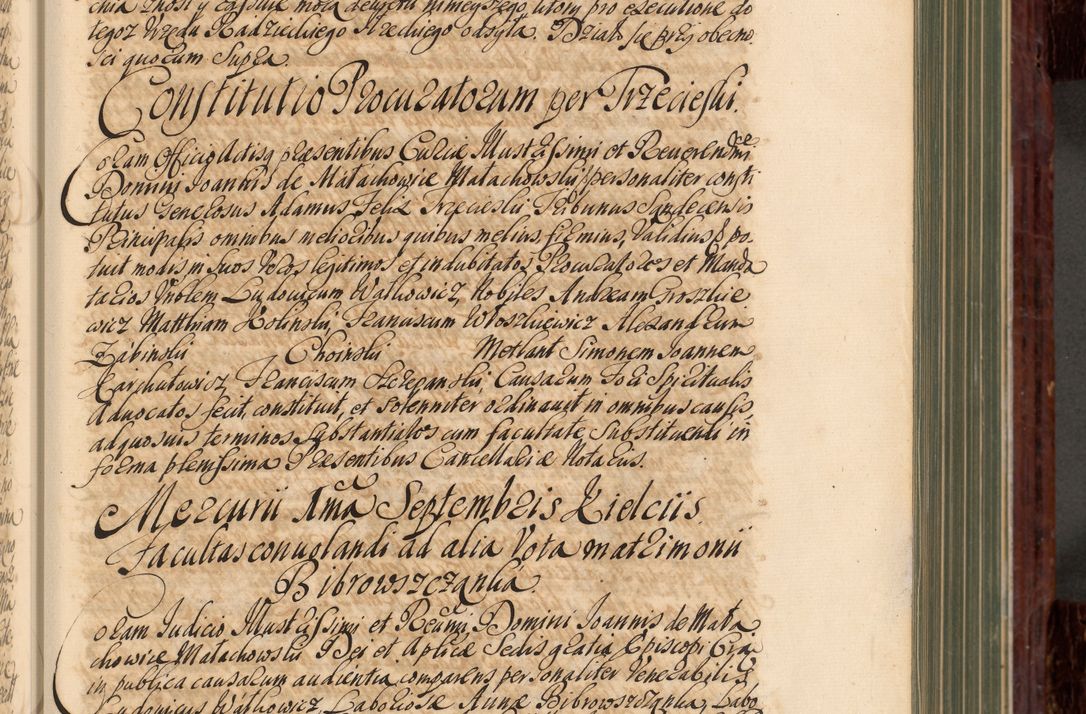 tegoz Vrzędu Radzieckiego Trzeckiego odsyła. Działo się przy obecno
sci quorum supra.
Constitutio Procuratorum per Trzecieski.
Coram Officio Actisq præsentibus Curiæ Illustrissimi et Reverendissimi
Domini Joannis de Małachowice Małachowski, personaliter consti
tutus Generosus Adamus Felix Trzecieski Tribunus Sandecensis
Principalis omnibus melioribus quibus melius, firmius, validius, po
tuit modis in suos veros legitimos et indubitatos Procuratores et Manda
tarios Vnblem Ludovicum Wątkowicz, Nobiles Andream Groszkie
wicz Matthiam Kolinski, Franciscum Włoszkiewicz Alexandrum
Zabinski Choinski Methant Simonem Joannem
Karchutowicz, Franciscum Szczepanski, Causarum Fori Spiritualis
Advocatos fecit, constituit, et solenniter ordinavit in omnibus causis,
ad quosvis terminos substantiales cum facultate substituendi in
forma plenissima Præsentibus Cancellariæ Notariis.
Mercurii 1ma Septembris Kielciis
Facultas convolandi ad alia Vota matrimonii
Bibrowszczanka
Coram Judicio Illustrissimi et Reverendissimi Domini Joannis de Mała
chowice Małachowski Dei et Aplicæ Sedis gratia Episcopi Cra
in publica causarum audientia comparens personaliter Venerabilis
Ludovicus Wątkowicz, Laboriosæ Annæ Bibrowszczanka, Labo